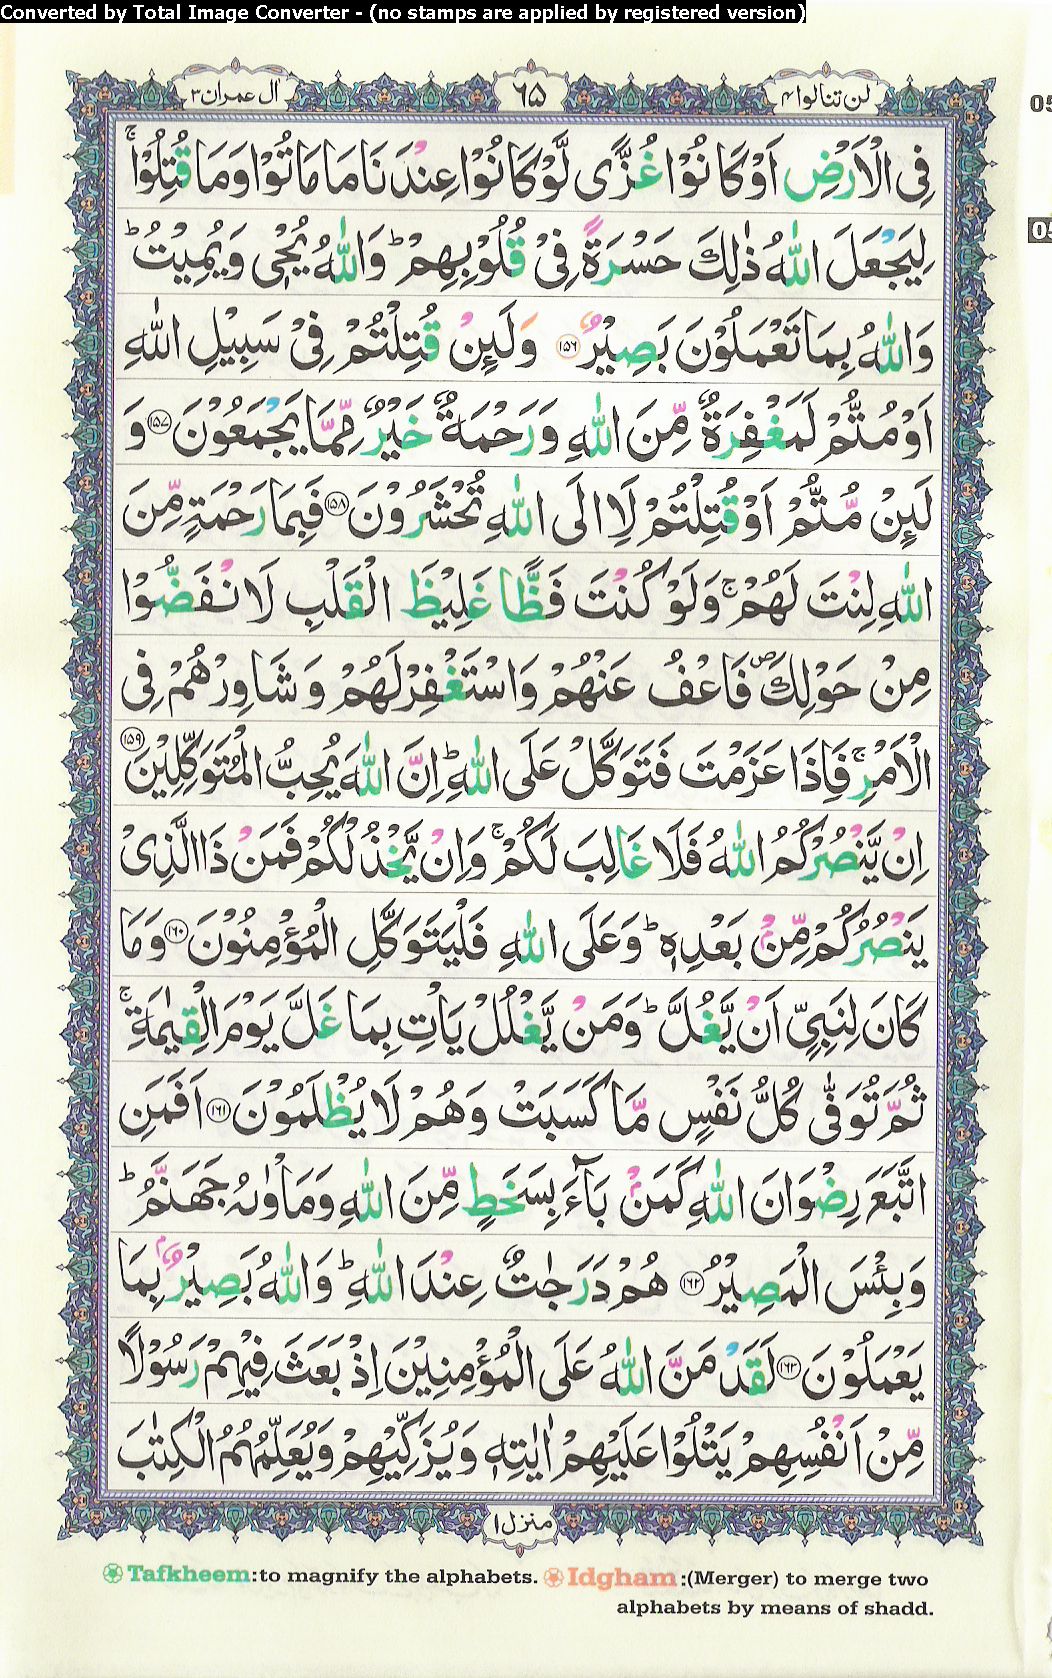 Converted by Total Image Converter - (no stamps are applied by registered version)
لن تنالوا ۴ ۶۵ اٰل عمران ۳
05
فِی الْاَرْضِ اَوْ كَانُوْا غُزًّی لَّوْ كَانُوْا عِنْدَنَا مَا مَاتُوْا وَمَا قُتِلُوْا ۚ
05
لِیَجْعَلَ اللّٰهُ ذٰلِكَ حَسْرَةً فِیْ قُلُوْبِهِمْ ؕ وَاللّٰهُ یُحْیٖ وَیُمِیْتُ ؕ
وَاللّٰهُ بِمَا تَعْمَلُوْنَ بَصِیْرٌ ۱۵۶ وَلَىِٕنْ قُتِلْتُمْ فِیْ سَبِیْلِ اللّٰهِ
اَوْ مُتُّمْ لَمَغْفِرَةٌ مِّنَ اللّٰهِ وَرَحْمَةٌ خَیْرٌ مِّمَّا یَجْمَعُوْنَ ۱۵۷ وَ
لَىِٕنْ مُّتُّمْ اَوْ قُتِلْتُمْ لَاۡاِلَی اللّٰهِ تُحْشَرُوْنَ ۱۵۸ فَبِمَا رَحْمَةٍ مِّنَ
اللّٰهِ لِنْتَ لَهُمْ ۚ وَلَوْ كُنْتَ فَظًّا غَلِیْظَ الْقَلْبِ لَا نْفَضُّوْا
مِنْ حَوْلِكَ ۪ فَاعْفُ عَنْهُمْ وَاسْتَغْفِرْ لَهُمْ وَشَاوِرْهُمْ فِی
الْاَمْرِ ۚ فَاِذَا عَزَمْتَ فَتَوَكَّلْ عَلَی اللّٰهِ ؕ اِنَّ اللّٰهَ یُحِبُّ الْمُتَوَكِّلِیْنَ ۱۵۹
اِنْ یَّنْصُرْكُمُ اللّٰهُ فَلَا غَالِبَ لَكُمْ ۚ وَاِنْ یَّخْذُلْكُمْ فَمَنْ ذَا الَّذِیْ
یَنْصُرُكُمْ مِّنْۢ بَعْدِهٖ ؕ وَعَلَی اللّٰهِ فَلْیَتَوَكَّلِ الْمُؤْمِنُوْنَ ۱۶۰ وَمَا
كَانَ لِنَبِیٍّ اَنْ یَّغُلَّ ؕ وَمَنْ یَّغْلُلْ یَاْتِ بِمَا غَلَّ یَوْمَ الْقِیٰمَةِ ۚ
ثُمَّ تُوَفّٰی كُلُّ نَفْسٍ مَّا كَسَبَتْ وَهُمْ لَا یُظْلَمُوْنَ ۱۶۱ اَفَمَنِ
اتَّبَعَ رِضْوَانَ اللّٰهِ كَمَنْۢ بَآءَ بِسَخَطٍ مِّنَ اللّٰهِ وَمَاْوٰىهُ جَهَنَّمُ ؕ
وَبِئْسَ الْمَصِیْرُ ۱۶۲ هُمْ دَرَجٰتٌ عِنْدَ اللّٰهِ ؕ وَاللّٰهُ بَصِیْرٌۢ بِمَا
یَعْمَلُوْنَ ۱۶۳ لَقَدْ مَنَّ اللّٰهُ عَلَی الْمُؤْمِنِیْنَ اِذْ بَعَثَ فِیْهِمْ رَسُوْلًا
مِّنْ اَنْفُسِهِمْ یَتْلُوْا عَلَیْهِمْ اٰیٰتِهٖ وَیُزَكِّیْهِمْ وَیُعَلِّمُهُمُ الْكِتٰبَ
منزل ۱
Tafkheem:to magnify the alphabets. Idgham:(Merger) to merge two
alphabets by means of shadd.